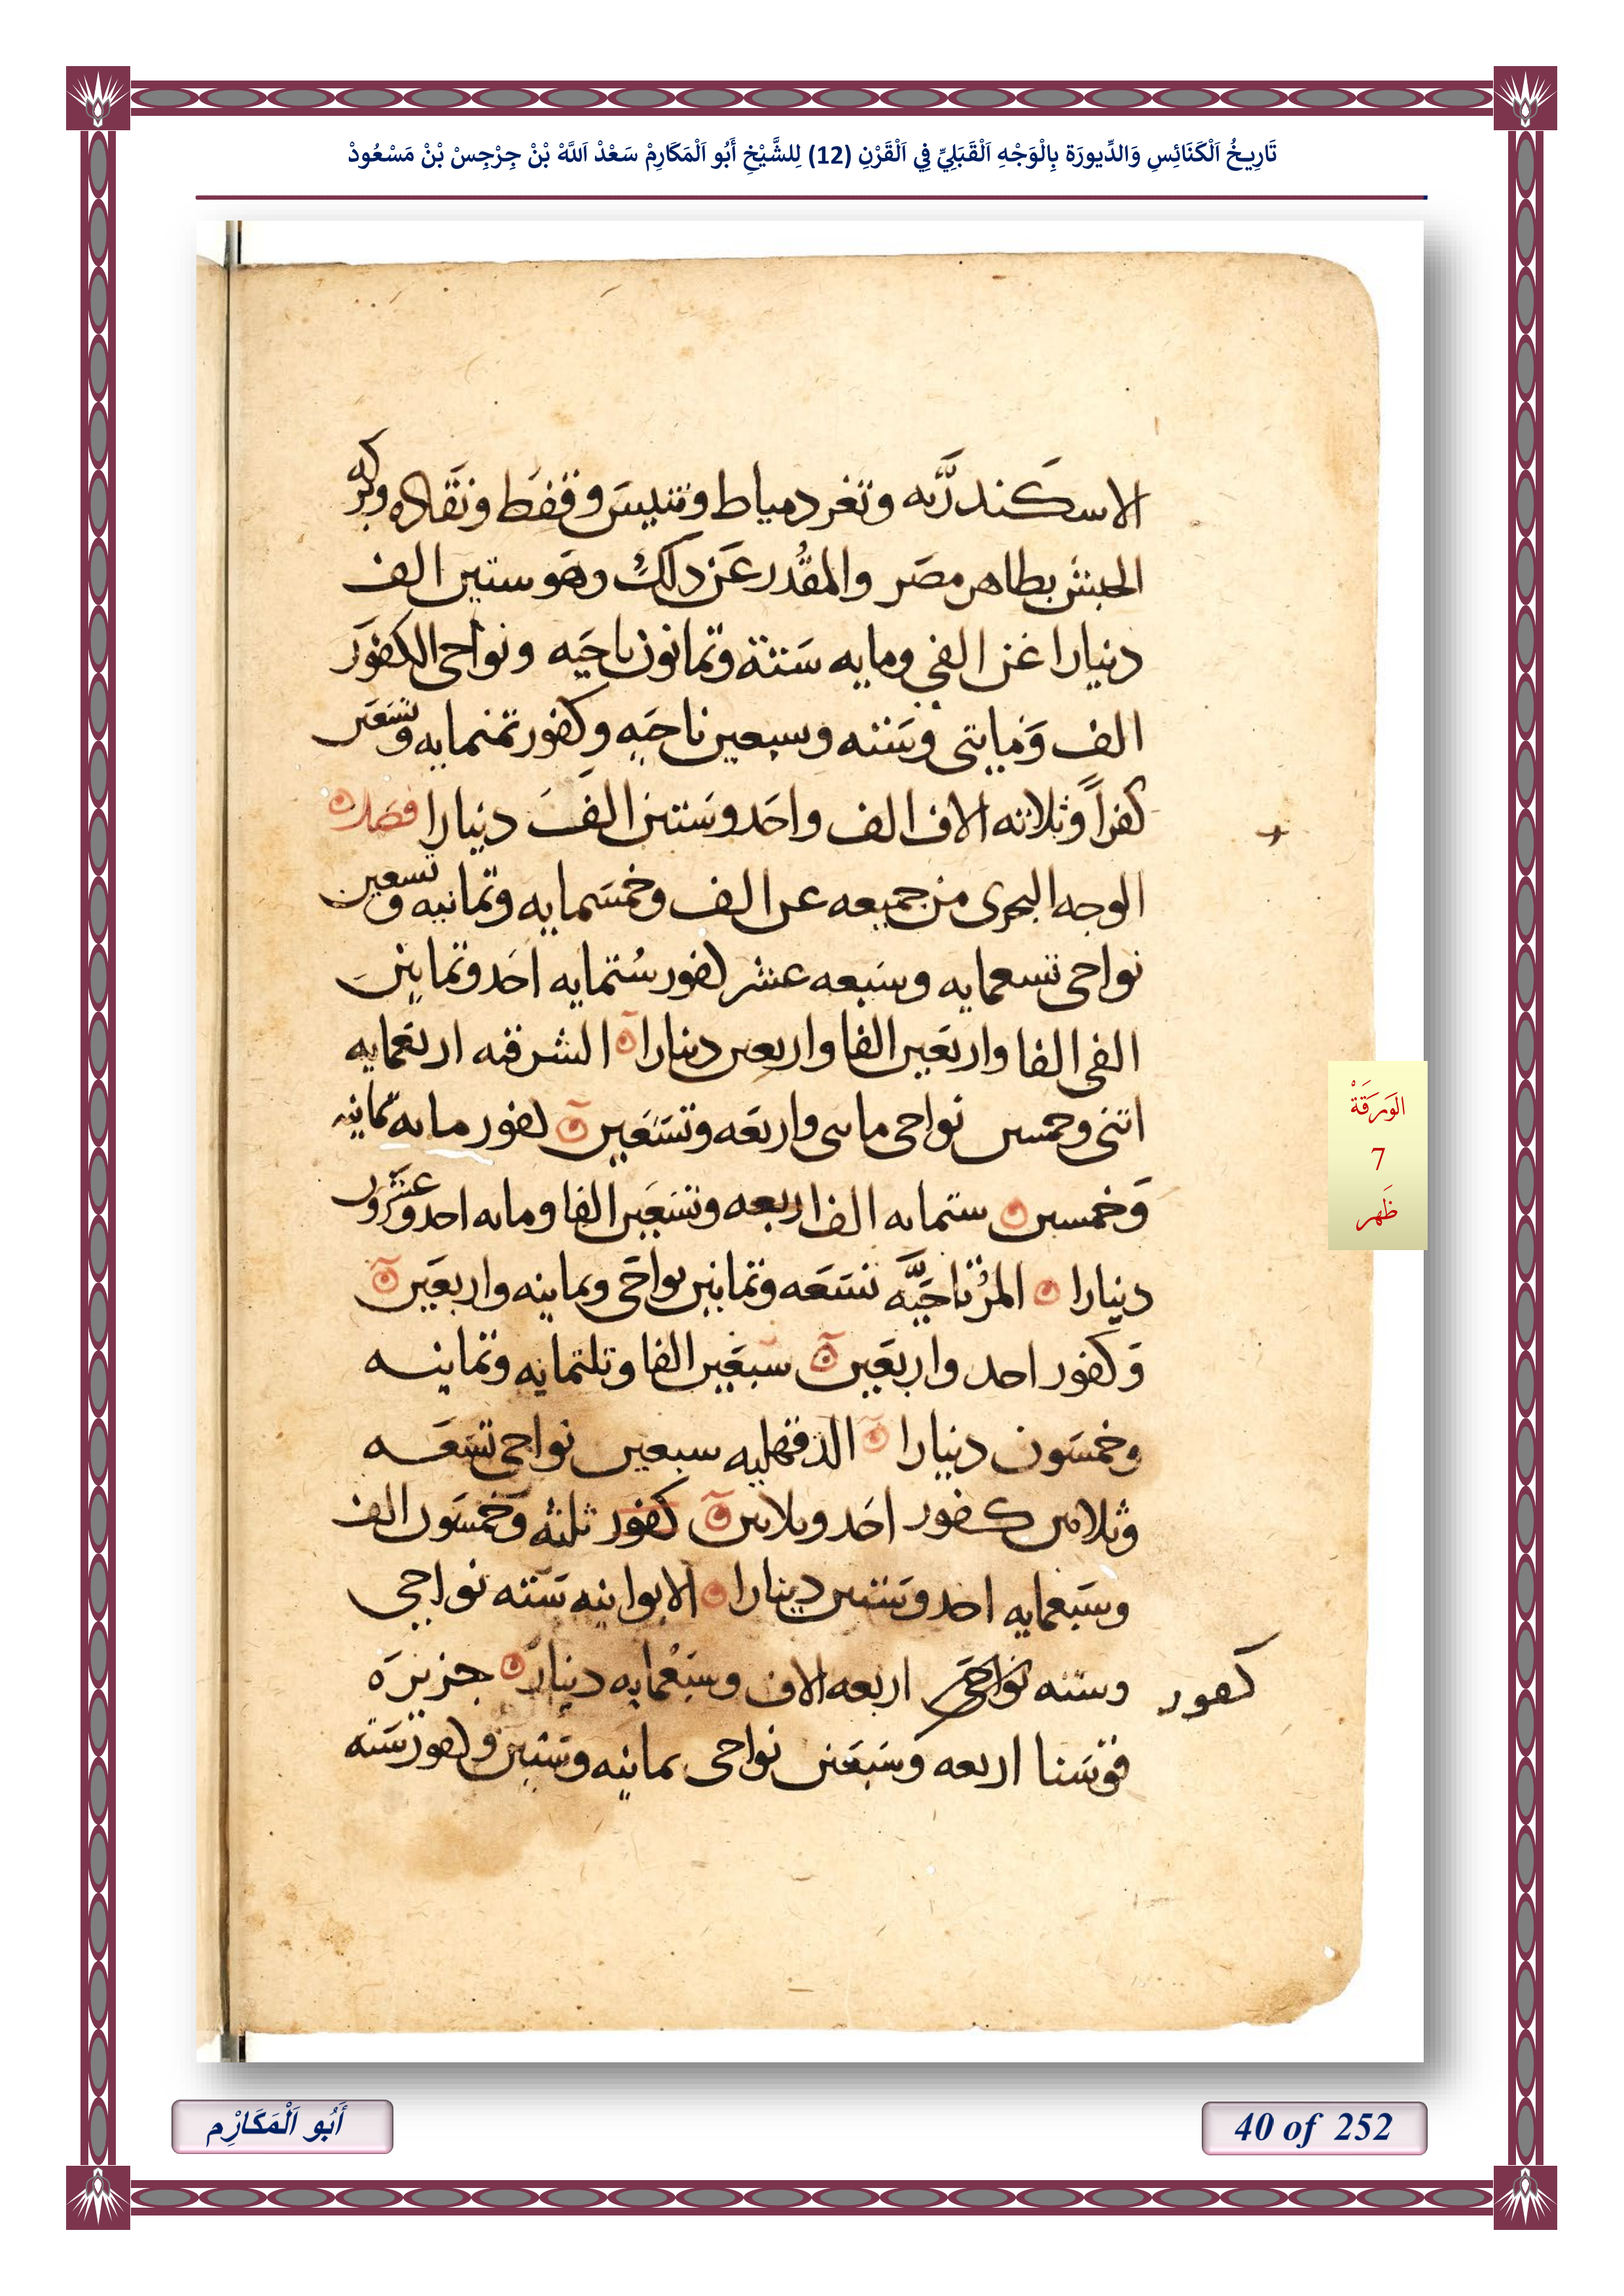 تَارِيخُ اَلْكَنَائِسِ وَالدِّيورَة بِالْوَجْهِ اَلْقَبَلِيِّ فِي اَلْقَرْنِ (12) لِلشَّيْخِ أَبُو اَلْمَكَارِمْ سَعْدْ اَللَّهْ بْنْ جِرْجِسْ بْنْ مَسْعُودْ
الاسكندريه وثغر دمياط وتنيس وقفط ونقاده وبركه
الحبش بطاهر مصر والمقدر عن دلك وهو ستين الف
دنيارا عن الفي ومايه ستة وثمانون ناحيه ونواحى الكفور
الف ومايتي وسته وسبعين ناحيه وكفور تمنمايه وتسعين
كفراً وثلاثه الاف الف واحد وستين الف دنيارا فصل
الوجه البحرى من جميعه عن الف وخمسمايه وثمانيه وتسعين
نواحى تسعمايه وسبعه عشر كفور ستمايه احد وثمانين
الفى الفا واربعين الفا واربعين دينارا الشرقيه اربعمايه
اثنى وخمسين نواحى مايتى واربعه وتسعين كفور مايه ثمانيه
وخمسين ستمايه الف اربعه وتسعين الفا ومايه احد وعشرون
دنيارا المرتاحيه تسعه وثمانين نواحى وثمانيه واربعين
وكفور احد واربعين سبعين الفا وتلتمايه وثمانيه
وخمسون دنيارا الدقهليه سبعين نواحى تسعه
وثلاثين كفور احد وثلاثين كفور ثلثه وخمسون الف
وسبعمايه احد وستين دينارا الابوانيه سته نواحى
وسته نواحى اربعه الاف وسبعمايه دينار جزيرة
كفور
قوسنا اربعه وسبعين نواحى ثمانيه وستين وكفور سته
الوَرَقَةْ
7
ظَهر
أَبُو اَلْمَكَارِم
40 of 252